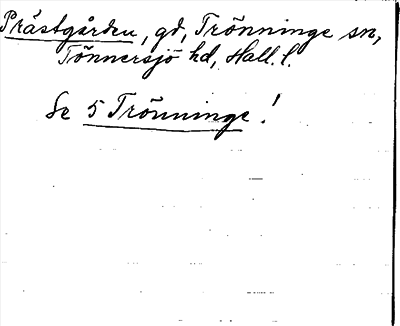 Prästgården, gd, Trönninge sn,
Tönnersjö hd, Hall. l.
Se 5 Trönninge!